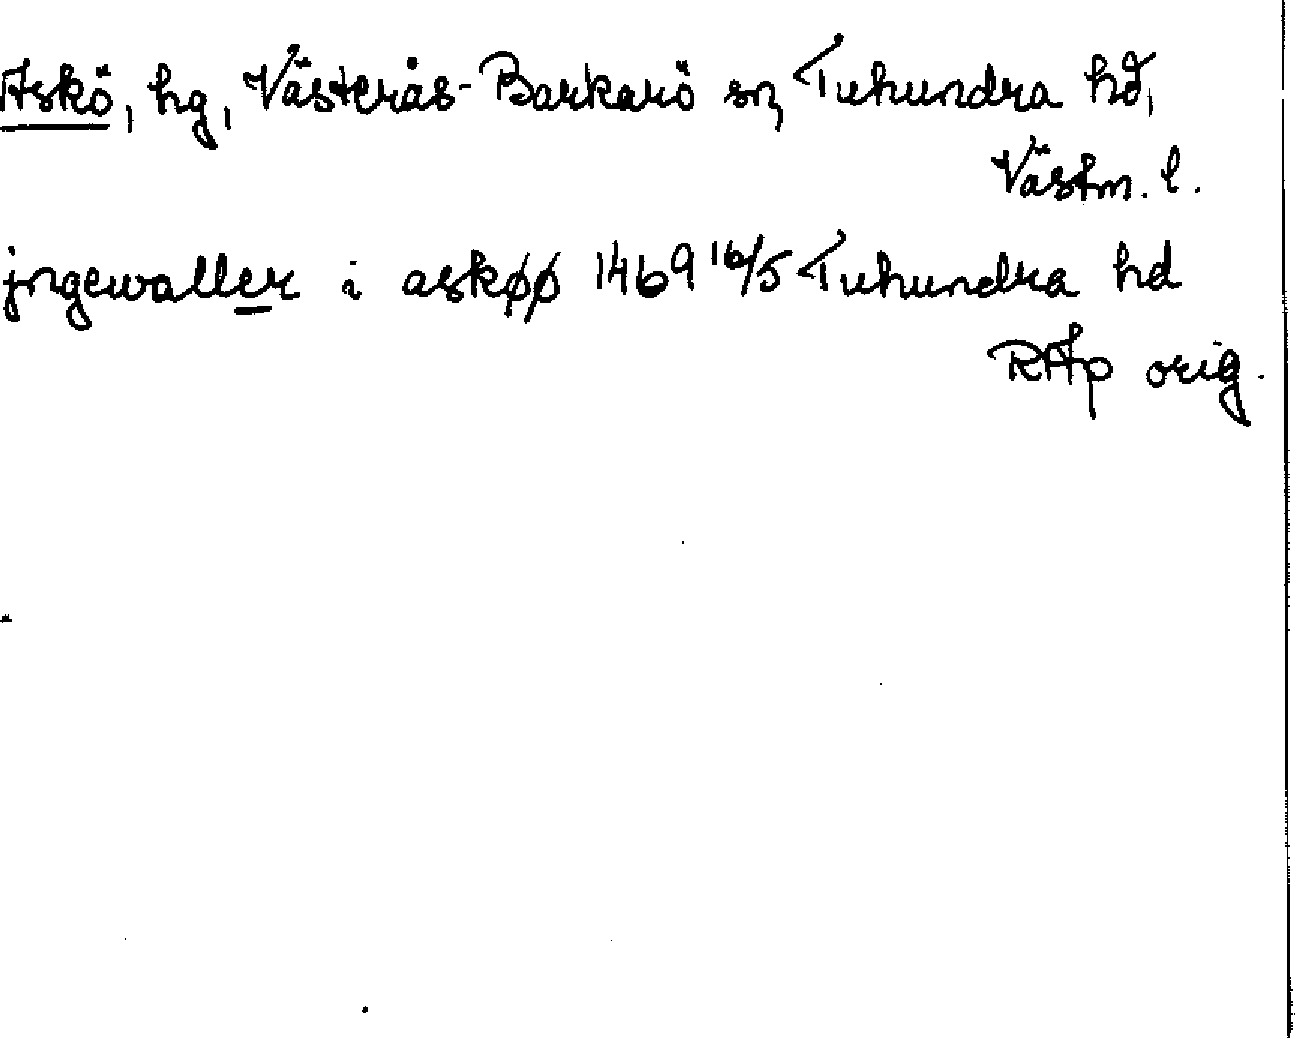 Askö, hg, Västerås-Barkarö sn, Tuhundra hd,
Västm. l.
jngewaller i askøø 1469 16/5 Tuhundra hd
RAp orig.